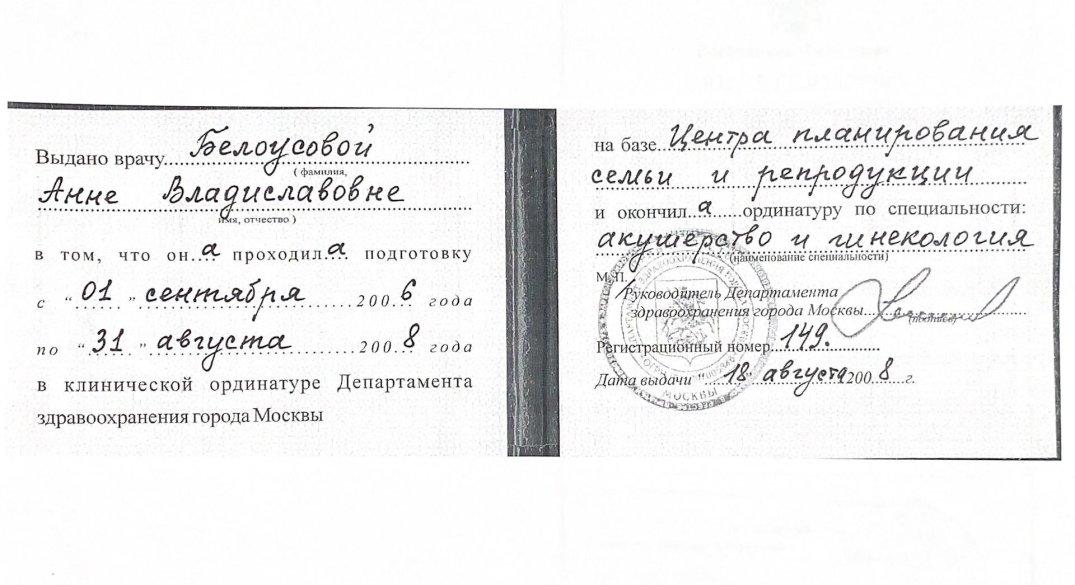 Выдано врачу Белоусовой
( фамилия,
Анне Владиславовне
имя, отчество )
в том, что он а проходил а подготовку
с “ 01 ” сентября 200 6 года
по “ 31 ” августа 200 8 года
в клинической ординатуре Департамента
здравоохранения города Москвы
на базе Центра планирования
семьи и репродукции
и окончил а ординатуру по специальности:
акушерство и гинекология
(наименование специальности)
М.П.
Руководитель Департамента
здравоохранения города Москвы
(подпись)
Регистрационный номер 149.
Дата выдачи “ 18 ” августа 200 8 г.
МОСКВЫ